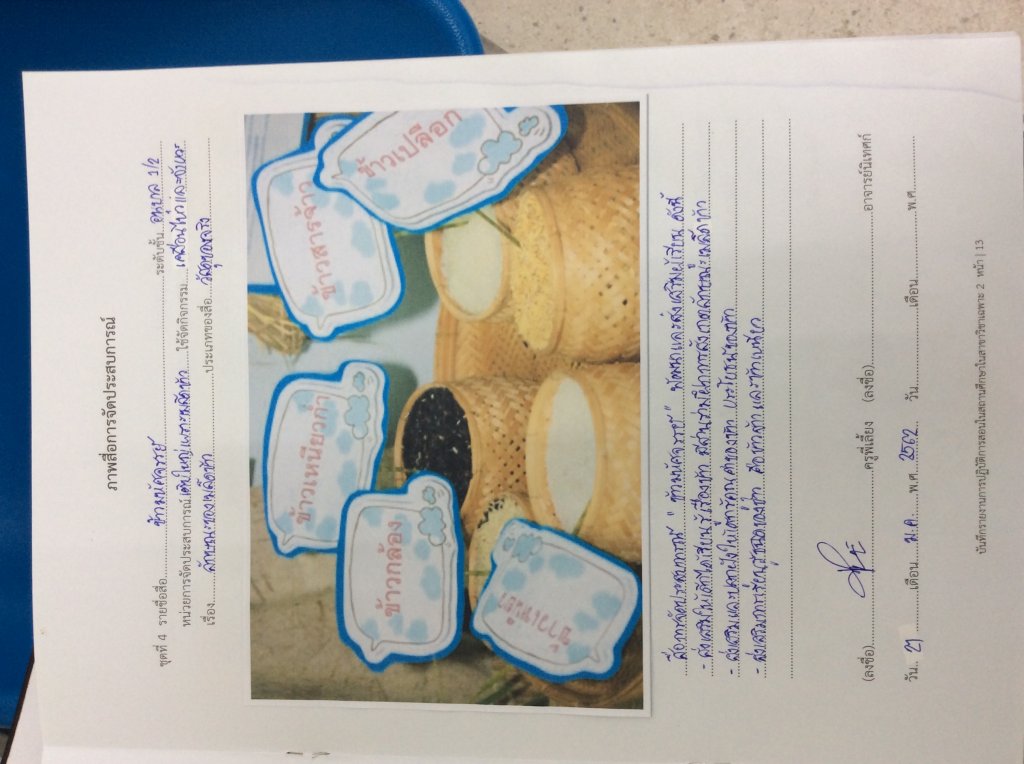 ภาพสื่อการจัดประสบการณ์
ชุดที่ 4 รายชื่อสื่อ ข้าวมหัศจรรย์ ระดับชั้น อนุบาล 1/2
หน่วยการจัดประสบการณ์ เติบใหญ่เพราะเมล็ดข้าว ใช้จัดกิจกรรม เคลื่อนไหวและจังหวะ
เรื่อง ลักษณะของเมล็ดข้าว ประเภทของสื่อ วัสดุของจริง
ข้าวเหนียวดำ
ข้าวสารจ้าว
ข้าวเปลือก
ข้าวกล้อง
ข้าวเหนียว
สื่อการจัดประสบการณ์ "ข้าวมหัศจรรย์" พัฒนาและส่งเสริมผู้เรียน ดังนี้
- ส่งเสริมให้เด็กได้เรียนรู้เรื่องข้าว มีส่วนร่วมฝึกการสังเกตลักษณะเมล็ดข้าว
- ส่งเสริมและปลูกฝังให้เด็กรู้คุณค่าของข้าว ประโยชน์ของข้าว
- ส่งเสริมการเรียนรู้ชนิดของข้าว คือ ข้าวจ้าว และข้าวเหนียว
(ลงชื่อ) ครูพี่เลี้ยง (ลงชื่อ) อาจารย์นิเทศก์
วัน 21 เดือน ม.ค. พ.ศ. 2562 วัน เดือน พ.ศ.
บันทึกรายงานการปฏิบัติการสอนในสถานศึกษาในสาขาวิชาเฉพาะ 2 หน้า | 13